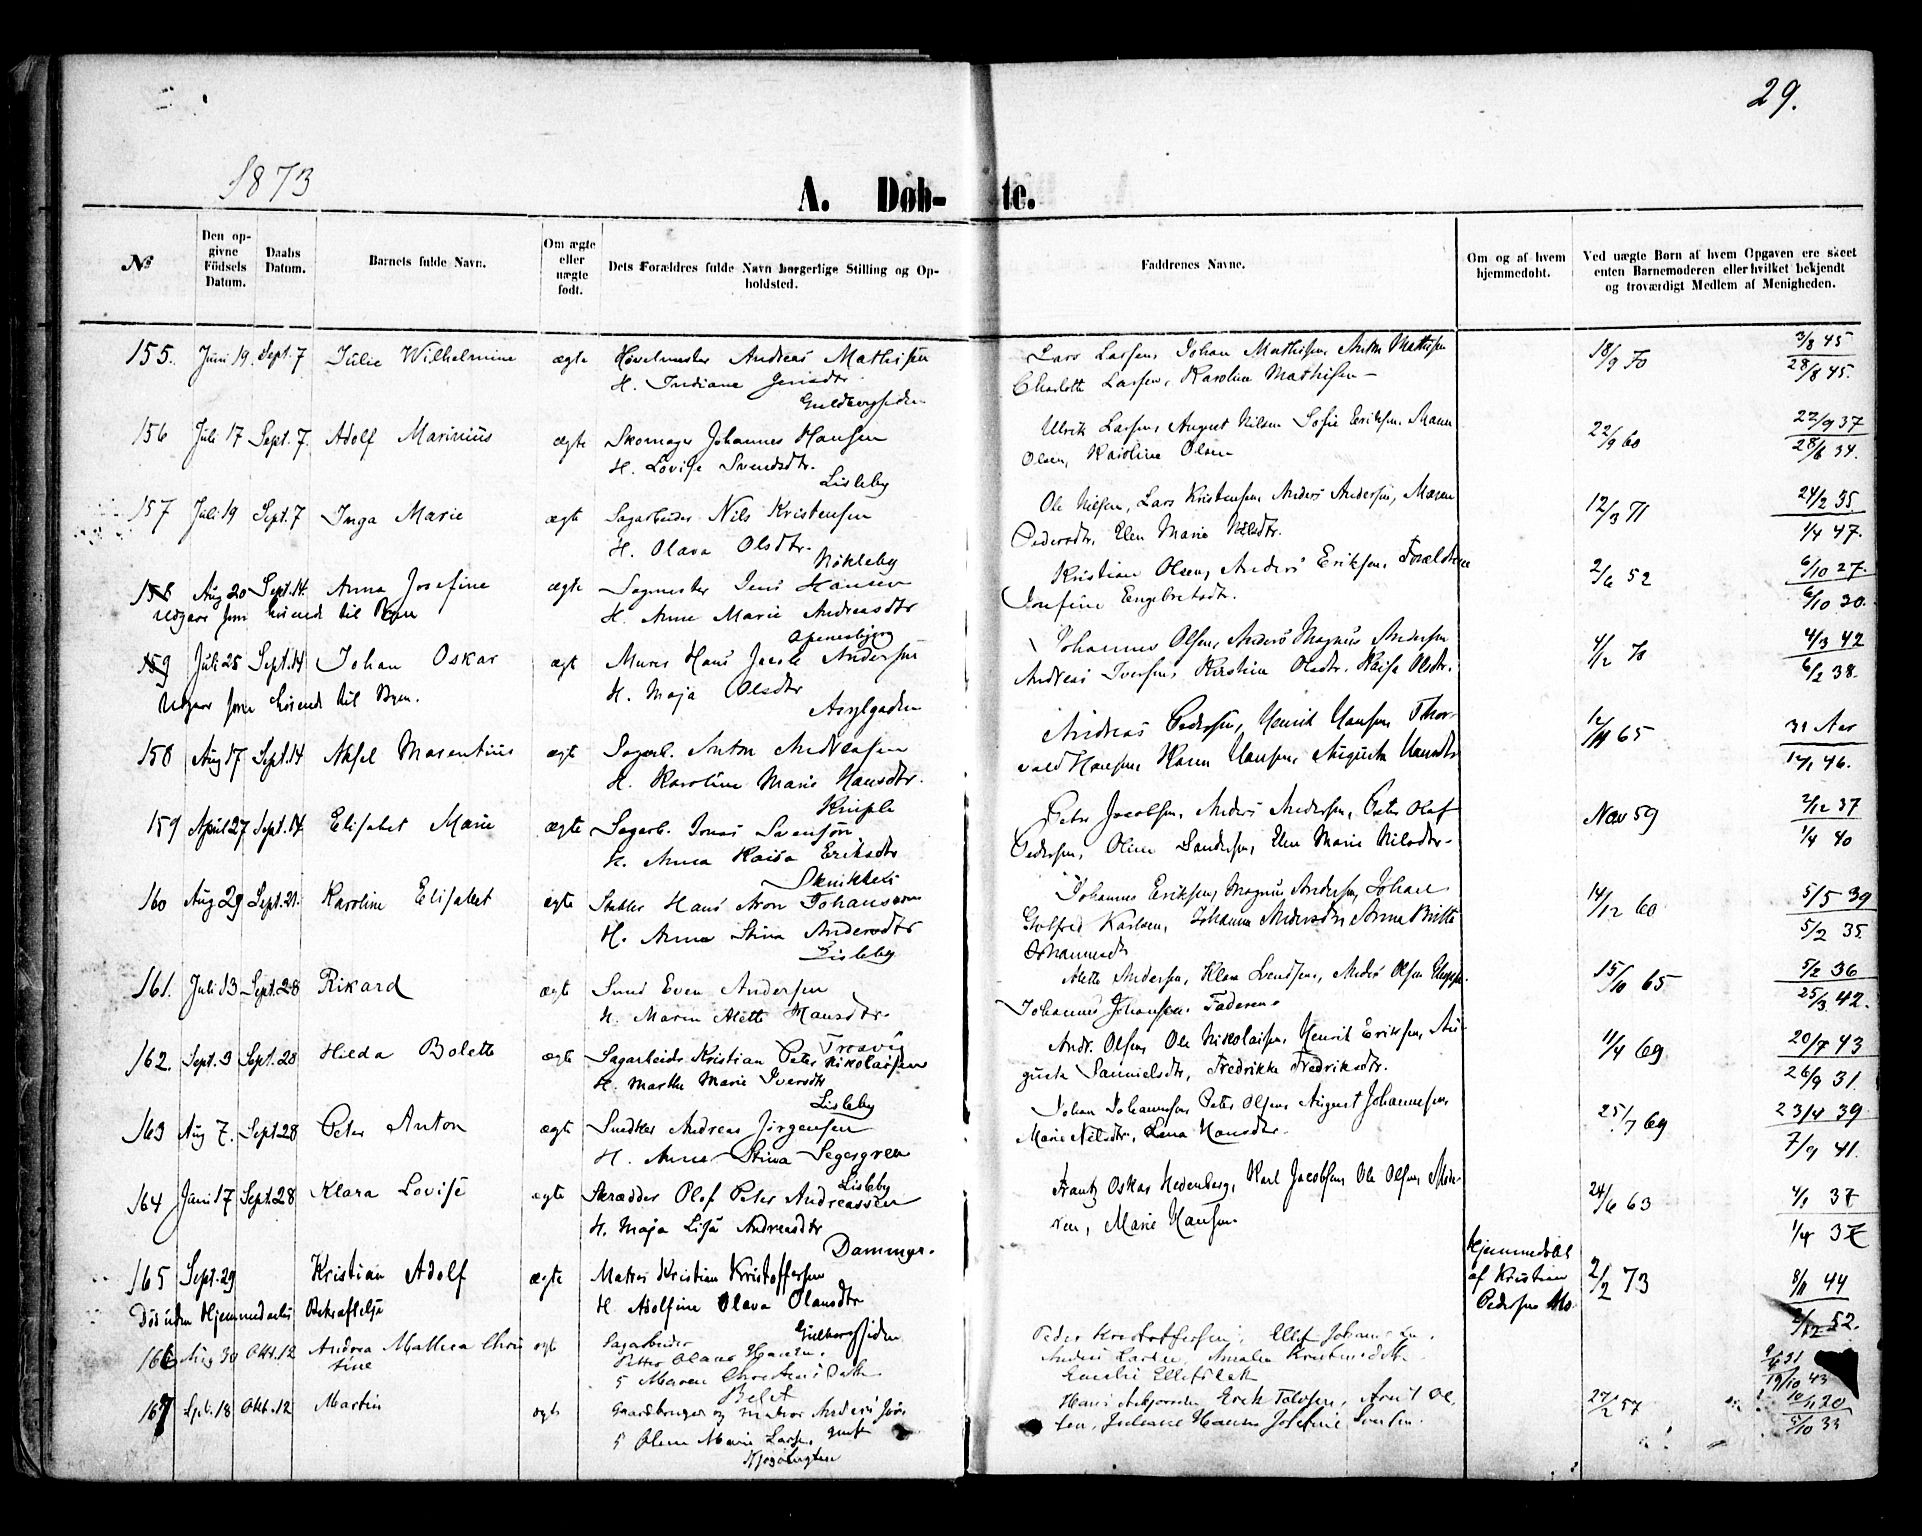 29.
1873
A. Døb- te.
№
Den op-
givne
Födsels
Datum.
Daabs
Datum.
Barnets fulde Navn.
Om ægte
eller
uægte
født.
Dets Forældres fulde Navn borgerlige Stilling og Op-
holdsted.
Faddrenes Navne.
Om og af hvem
hjemmedøbt.
Ved uægte Børn af hvem Opgaven ere skeet
enten Barnemoderen eller hvilket bekjendt
og troværdigt Medlem af Menigheden.
155. Juni 19. Sept. 7 Julie Wilhelmine ægte Høvelmester Andreas Mathisen Lars Larsen, Johan Mathisen, Anton Mathisen 18/9 70 3/8 45
H. Indiane Jensdtr. Charlotte Larsen, Karoline Mathisen 28/8 45.
Guldbergsiden
156 Juli 17 Sept. 7. Adolf Marinius ægte Skomager Johannes Hansen Ulrik Larsen, August Nilsen Sofie Eriksen, Maren 22/9 60 22/9 37
H. Lovise Svendsdtr. Olsen, Karoline Olsen 28/6 34.
Lisleby
157 Juli 19 Sept. 7 Inga Marie ægte Sagarbeider Nils Kristensen Ole Nilsen, Lars Kristensen Anders Andersen, Maren 12/3 71 24/2 35
H. Olava Olsdtr. Pedersdtr, Elen Marie Nilsdtr. 1/4 47.
Nøkleby
158 Aug 20 Sept. 14. Anna Josefine ægte Sagmester Jens Hansen Kristian Olsen, Anders Eriksen, Forældrene 2/6 52 6/10 27.
Udgaar som hørende til Byen H. Anne Marie Andreasdtr Josefine Engebretsdtr. 6/10 30.
159 Juli 25 Sept. 14 Johan Oskar ægte Murer Hans Jacob Andersen Johannes Olsen, Anders Magnus Andersen 4/2 70 4/3 42
Udgaar som hørende til Byen. H. Maja Olsdtr Andreas Iversen, Kirstine Olsdtr. Kaisa Olsdtr. 6/2 38.
Asylgaden
158 Aug 17 Sept. 14 Aksel Marentius ægte Sagarb. Anton Andreasen Andreas Pedersen, Henrik Hansen, Thor- 65 31 Aar
H. Karoline Marie Hansdtr. vald Hansen, Karen Hansen, Augusta Hansdtr 46.
159 April 27 Sept. 14 Elisabet Marie ægte Sagarb. Jonas Svensøn Peter Jacobsen, Anders Andersen, Peter Olaf Nov 59 2/12 37
H. Anna Kaisa Eriksdtr Pedersen, Oline Sandersen, Elen Marie Nilsdtr. 1/4 40
160 Aug 29 Sept. 21. Karoline Elisabet ægte Stabler Hans Aron Johansson Johannes Eriksen, Magnus Andersen, Johan 14/12 60 5/5 39
H. Anna Stina Andersdtr Gotfred Karlsen, Johanna Andersdtr, Anna Britta 5/2 35.
Lisleby Johannesdtr
161. Juli 13 Sept. 28 Rikard ægte Smed Even Andersen Alette Andersen, Klara Andersen, Anders Olsen 15/10 65 5/2 36
H. Maren Alette Hansdtr. Johannes Johansen, Faderen. 25/3 42.
Trosvig
162. Sept. 3 Sept. 28 Hilda Bolette ægte Sagarbeider Kristian Peter Nikolaisen Andr. Olsen, Ole Nikolaisen, Henrik Eriksen, Au- 11/4 69 20/7 43
H. Marthe Marie Iversdtr gusta Samuelsdtr, Fredrikke Fredriksdtr. 26/9 31.
Lisleby
163 Aug 7. Sept. 28 Peter Anton ægte Snedker Andreas Jørgensen Johan Johannesen Peter Olsen, August Johannesen, 25/7 69 23/4 39
H. Anna Stina Segergren Marie Nilsdtr, Lena Hansdtr. 7/9 41.
Lisleby
164 Juni 17 Sept. 28 Klara Lovise ægte Skrædder Olof Peter Andreassen Frantz Oskar Hedenberg, Karl Jacobsen, Ole Olsen, Mode- 24/6 63 4/1 37
H. Maja Lisa Andreasdtr ren, Marie Hansen 1/4 37
Dammyr.
165 Sept. 29 Kristian Adolf ægte Matros Kristian Kristoffersen Hjemmedøbt
af Kristian
Pedersen 2/2 73 8/11 44
Død uden Hjemmedaabs Bekræftelse H. Adolfine Olava Olausdtr 2/12 52.
Gulbergsiden
166 Aug 30 Okt. 12 Andrea Mathea Chris- ægte Sagarbeider Peder Kristoffersen, Ellef Johansen,
tine Petter Olaus Hansen. Anders Larsen, Amalie Kristiansdtr.
Emilie Ellefsdtr
167 Sept. 18 Okt. 12 Martin ægte Gaardbruger og Matros Anders Hans Asbjørnsen Erik Tolvsen, Arnt Ol- 27/2 57 10/1 20
Olene Marie Larsen sen, Juliane Hansen Josefine Iversen. 5/10 33